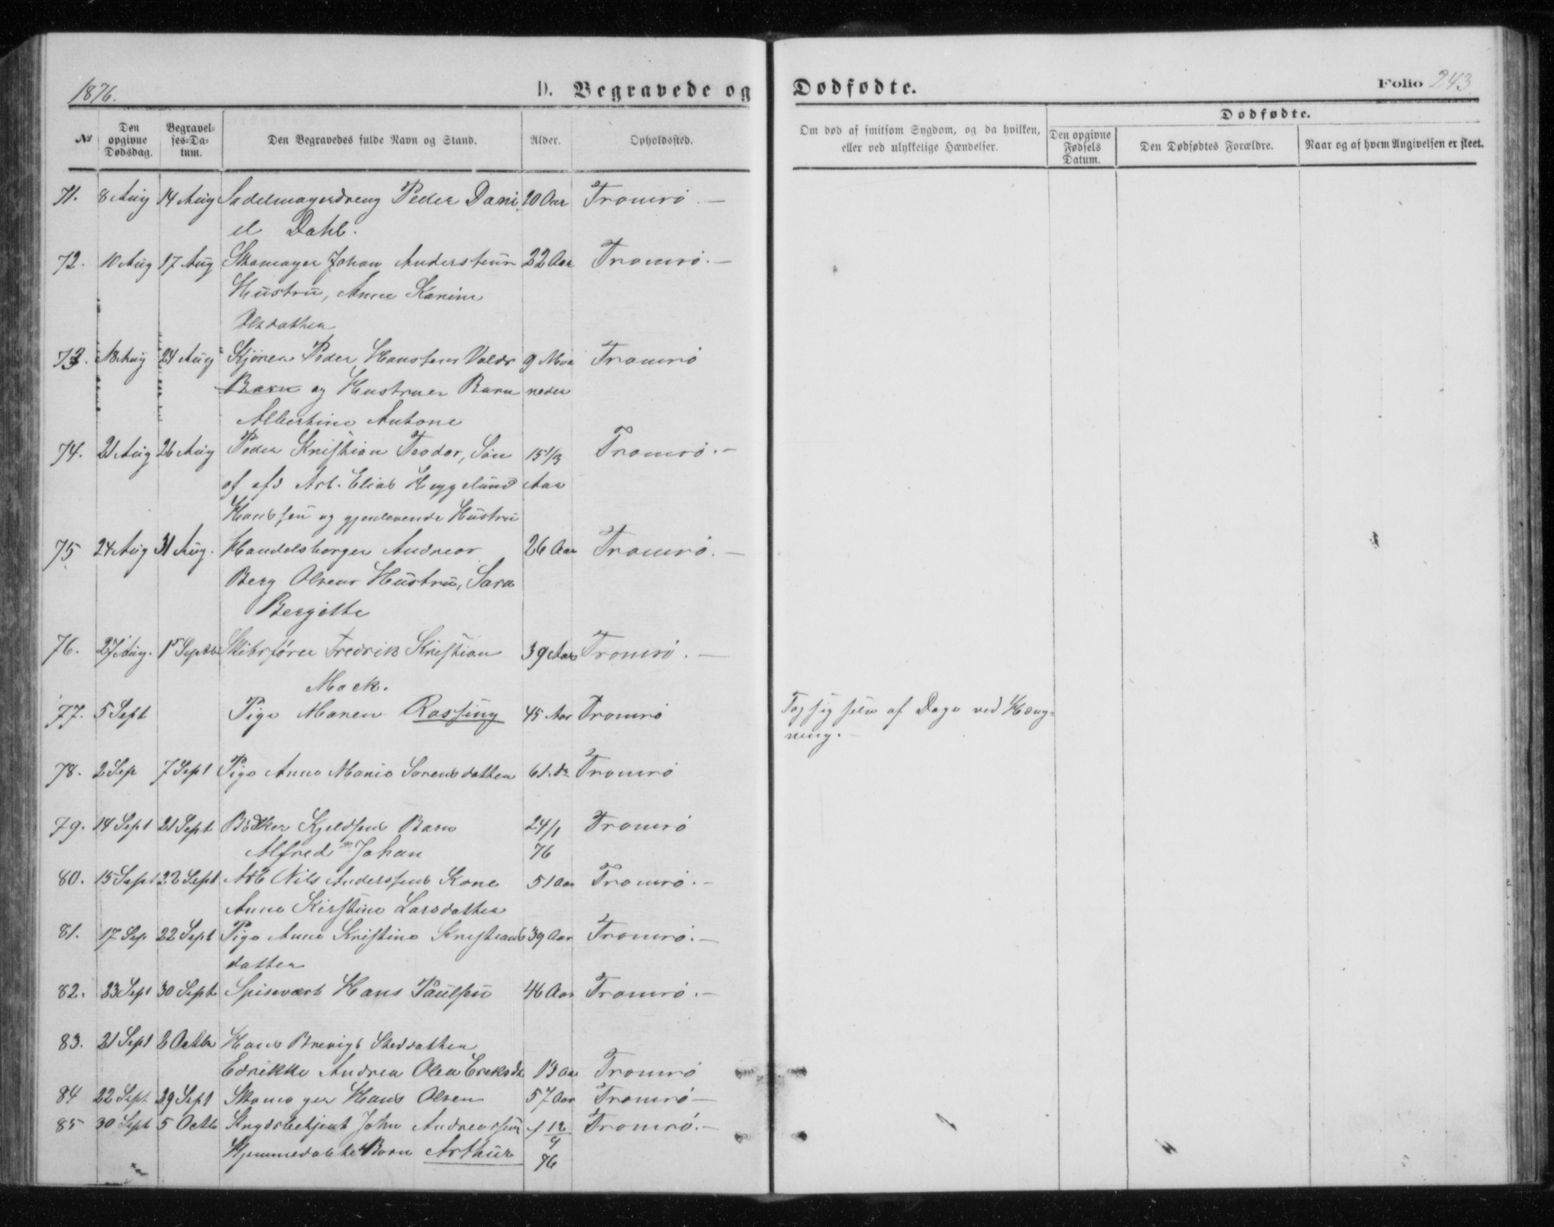 1876.
D. Begravede og Dødfødte.
Folio 243
No
Den opgivne Dødsdag.
Begravelses-Datum.
Den Begravedes fulde Navn og Stand.
Alder.
Opholdssted.
Om død af smitsom Sygdom, og da hvilken, eller ved ulykkelige Hændelser.
Dødfødte.
Den opgivne Fødsels Datum.
Den Dødfødtes Forældre.
Naar og af hvem Angivelsen er skeet.
71. 8 Aug 14 Aug Sadelmagerdreng Peder Dani 20 Aar Tromsø. —
el Dahl.
72. 10 Aug 17 Aug Skomager Johan Anderssens 22 Aar Tromsø. —
Hustru, Anna Karine
Olsdatter
73. 18 Aug 24 Aug Peder Hanssens 9 Maa Tromsø
Barn og Hustrues Barn neder
Albertine Antone
74. 21 Aug 26 Aug Peder Kristian Teodor, Søn 15 1/3 Tromsø. —
af afd Arb. Elias Heggelund Aar
Hanssen og gjenlevende Hustru
75 24 Aug 31 Aug. Handelsborger Andreas 26 Aar Tromsø. —
Berg Olsens Hustru, Sara
Bergitte
76. 27 Aug. 1 Septbr Skibsfører Fredrik Kristian 39 Aar Tromsø. —
Mack.
77. 5 Sept Pige Maren Rassing 45 Aar Tromsø Tog sig selv af Dage ved Hæng-
ning. —
78. 2 Sep 7 Sept Pige Anna Maria Sørensdatter 61 do Tromsø
79. 14 Sept 21 Sept Bødker Kjeldsens Barn 24/1 Tromsø
Alfred Johan 76
80. 15 Sept 22 Sept Arb Nils Anderssens Kone 51 Aar Tromsø. —
Anna Kirstine Larsdatter
81. 17 Sep 22 Sept Pige Anna Kristine Kristians 39 Aar Tromsø. —
datter
82. 23 Sept 30 Sept Spisevært Hans Paulsen 46 Aar Tromsø. —
83. 21 Sept 2 Octbr Hans Brevigs Steddatter
Edrikke Andrea Olea Eriksdt 13 Aar Tromsø
84 22 Sept 29 Sept Skomager Hans Olsen 57 Aar Tromsø —
85 30 Sept 5 Octb John Andreassens Tromsø. —
Hjemmedøbte Barn Arthur 76